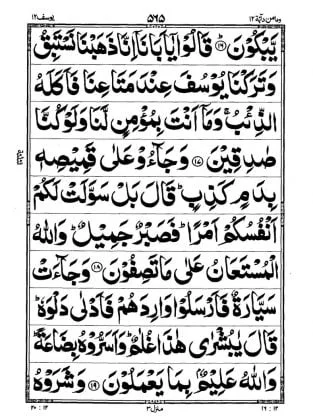 وما من دآبة ١٢ ٥٦٥ يوسف ١٢
يَّبْكُوْنَ ۝١٦ قَالُوْا يٰۤاَبَانَاۤ اِنَّا ذَهَبْنَا نَسْتَبِقُ
وَتَرَكْنَا يُوْسُفَ عِنْدَ مَتَاعِنَا فَاَكَلَهُ
الذِّئْبُ ۚ وَمَاۤ اَنْتَ بِمُؤْمِنٍ لَّنَا وَلَوْ كُنَّا
صٰدِقِيْنَ ۝١٧ وَجَآءُوْ عَلٰى قَمِيْصِهٖ
بِدَمٍ كَذِبٍ ؕ قَالَ بَلْ سَوَّلَتْ لَكُمْ
اَنْفُسُكُمْ اَمْرًا ؕ فَصَبْرٌ جَمِيْلٌ ؕ وَاللّٰهُ
الْمُسْتَعَانُ عَلٰى مَا تَصِفُوْنَ ۝١٨ وَجَآءَتْ
سَيَّارَةٌ فَاَرْسَلُوْا وَارِدَهُمْ فَاَدْلٰى دَلْوَهٗ ؕ
قَالَ يٰبُشْرٰى هٰذَا غُلٰمٌ ؕ وَاَسَرُّوْهُ بِضَاعَةً ؕ
وَاللّٰهُ عَلِيْمٌۢ بِمَا يَعْمَلُوْنَ ۝١٩ وَشَرَوْهُ
١٢ : ١٦ منزل ٣ ١٢ : ٢٠